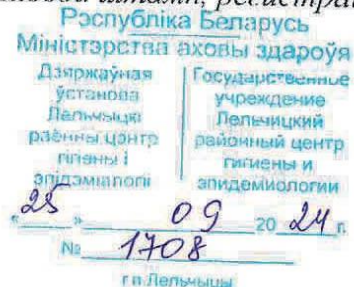 штамп, регистра
Рэспубліка Беларусь
Міністэрства аховы здароўя
Дзяржаўная
ўстанова
Лельчыцкі
раённы цэнтр
гігіены і
эпідэміялогіі
Государственное
учреждение
Лельчицкий
районный центр
гигиены и
эпидемиологии
"25" 09 2024 г.
№ 1708
г.п.Лельчыцы